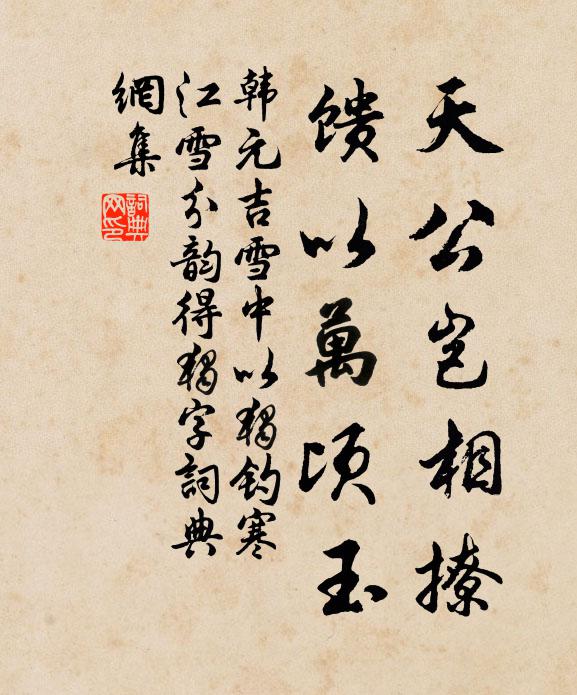 天公岂相撩
馈以萬頃玉
韩元吉雪中以獨钓寒
江雪分韵得獨字詞典
網集
詞典网印